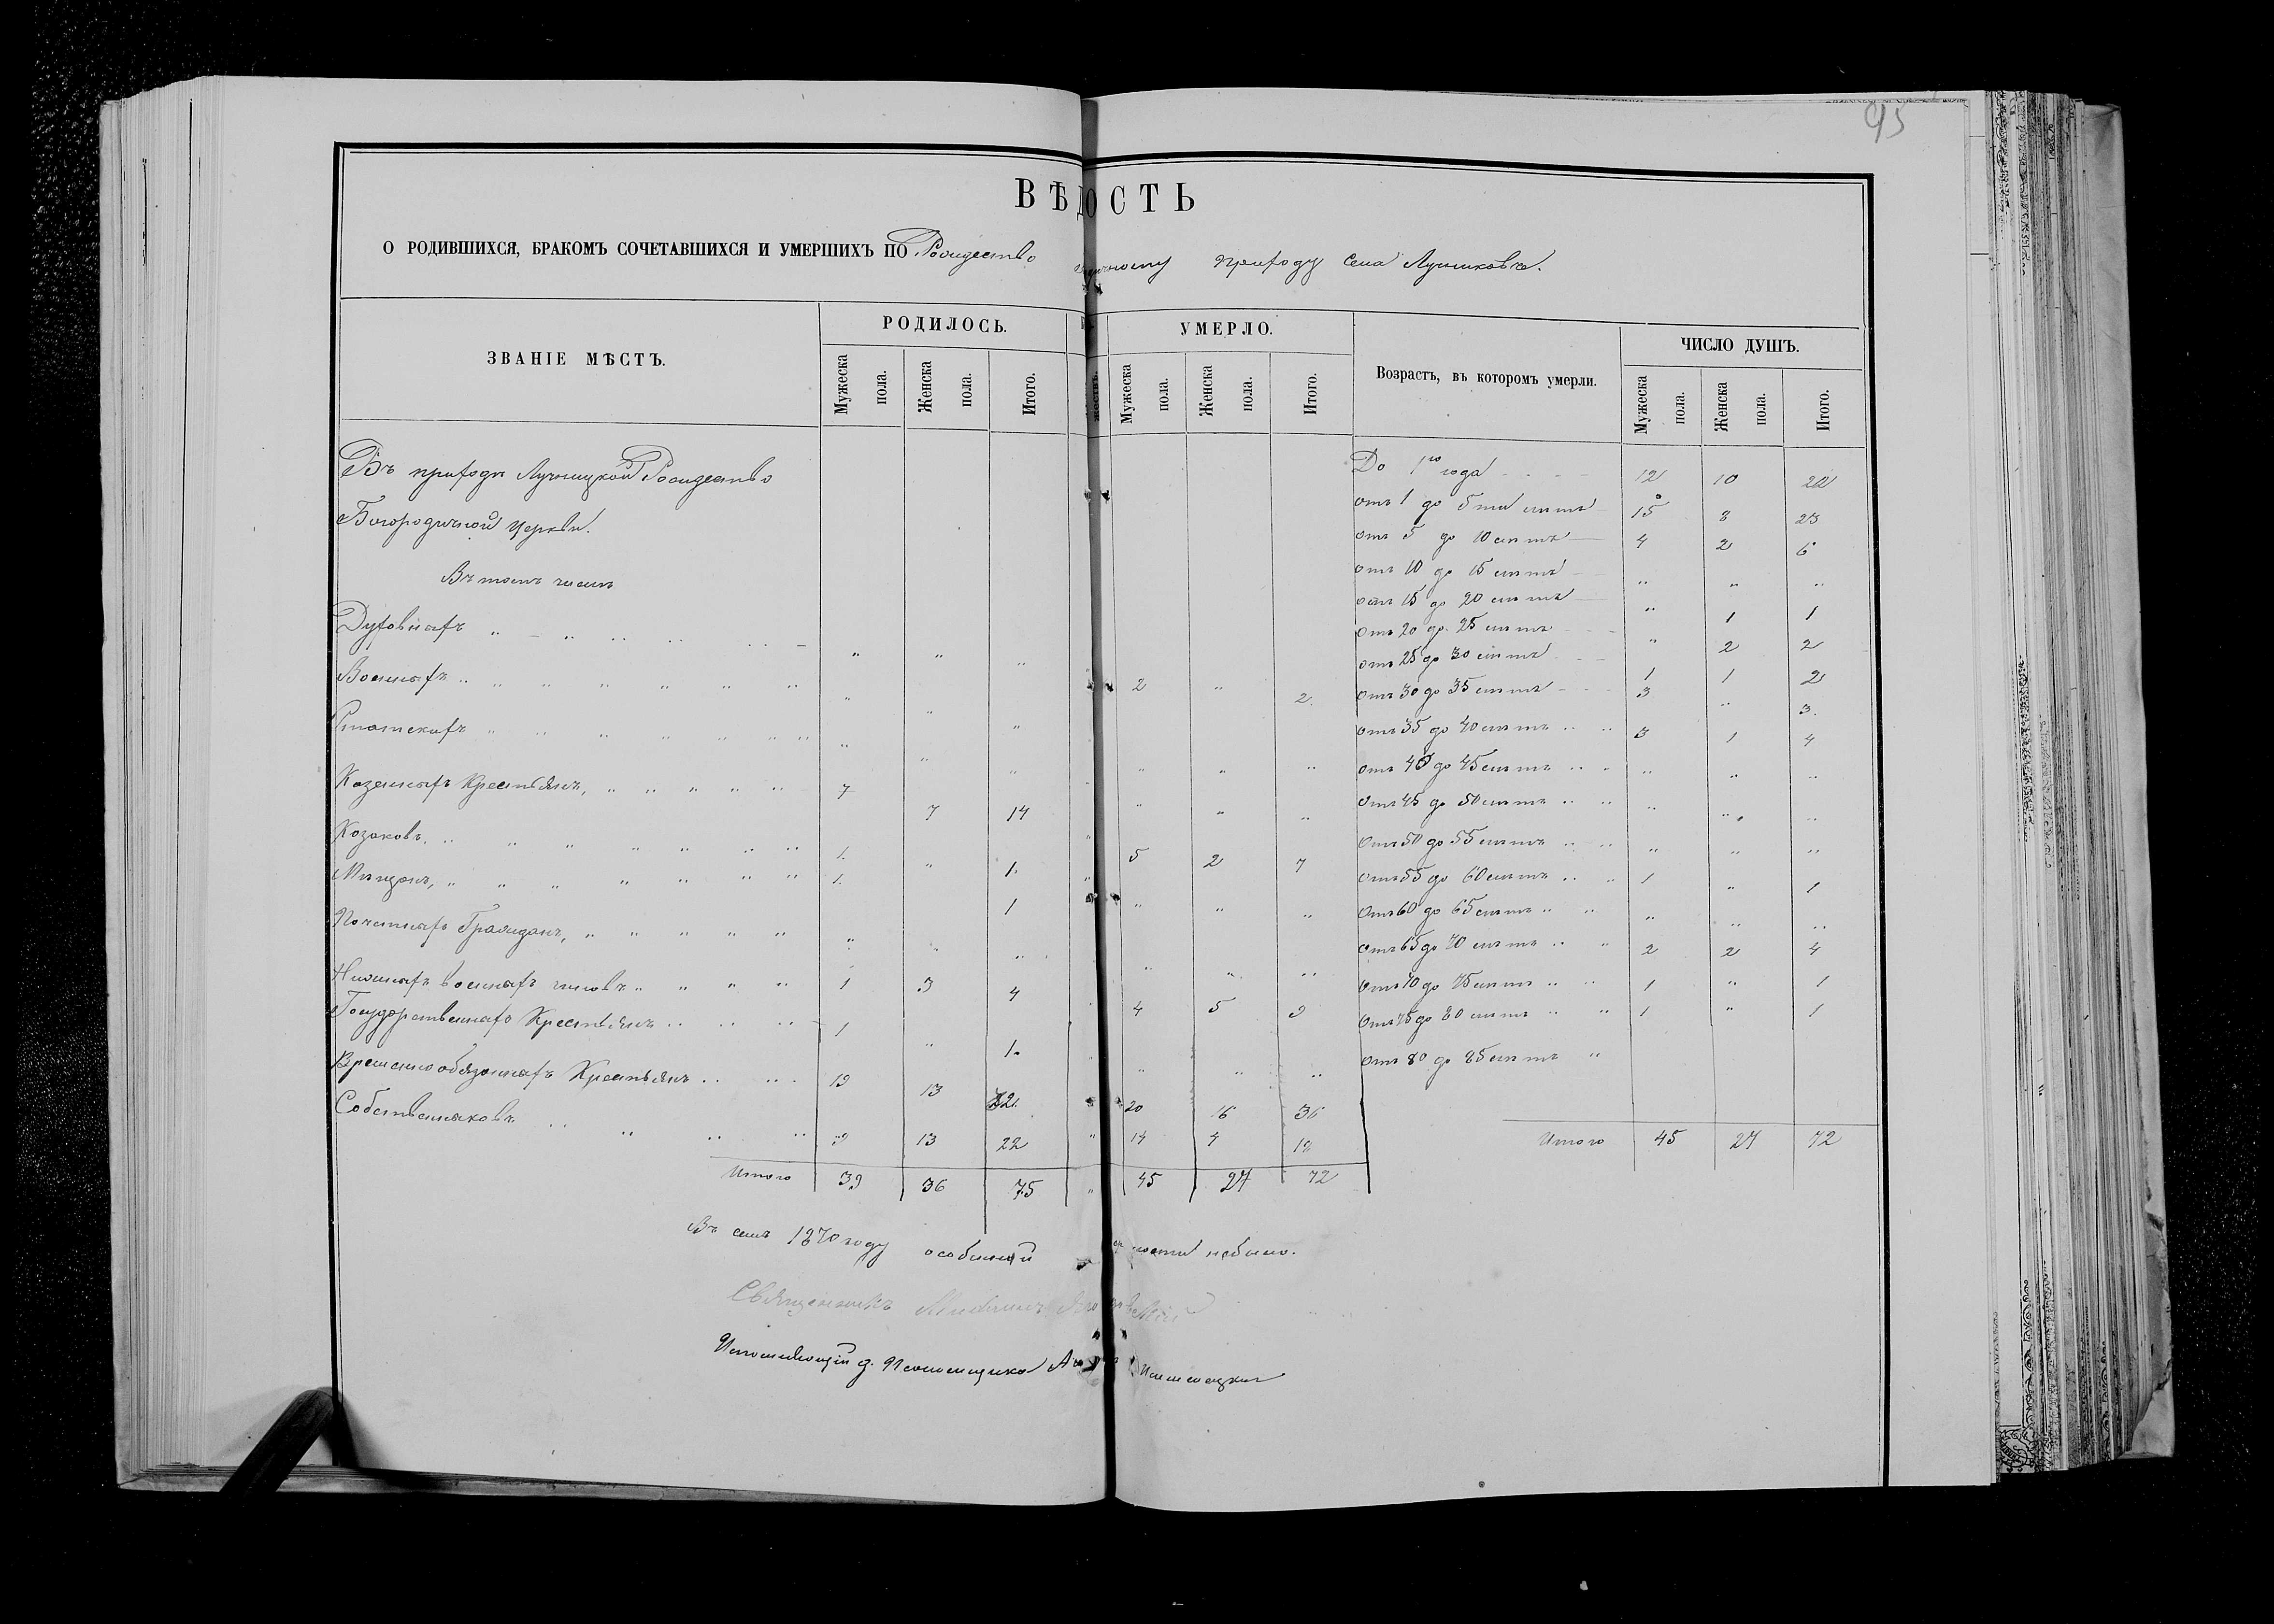 95
ВѢДОСТЬ
О РОДИВШИХСЯ, БРАКОМЪ СОЧЕТАВШИХСЯ И УМЕРШИХЪ ПО Рождество приходу Села
ЗВАНІЕ МѢСТЪ.
РОДИЛОСЬ.
Мужеска пола.
Женска пола.
Итого.
УМЕРЛО.
Мужеска пола.
Женска пола.
Итого.
Возрастъ, въ которомъ умерли.
ЧИСЛО ДУШЪ.
Мужеска пола.
Женска пола.
Итого.
Въ приходѣ Рождество
Богородичной Церкви.
Въ томъ числѣ
Духовныхъ " " "
Военныхъ " " " 2 " 2.
Статскихъ " " " " " "
Казенныхъ Крестьянъ, 7 7 14 " " "
Козаковъ. 1. " 1. 5 2 7
Мѣщанъ, 1. 1 " " "
Почетныхъ Гражданъ, " " " " " "
Нижнихъ военныхъ чиновъ 1 3 4 4 5 9
Государственныхъ Крестьянъ 1 " 1. " " "
Временнообязанныхъ Крестьянъ 19 13 32. 20 16 36
Собственниковъ 9 13 22 " 14 4 18
Итого 39 36 75 " 45 27 72
До 1го года 12 10 22
отъ 1 до 5ти лѣтъ 15 8 23
отъ 5 до 10 лѣтъ 4 2 6
отъ 10 до 15 лѣтъ " " "
отъ 15 до 20 лѣтъ " 1 1
отъ 20 до 25 лѣтъ " 2 2
отъ 25 до 30 лѣтъ 1 1 2
отъ 30 до 35 лѣтъ 3 " 3.
отъ 35 до 40 лѣтъ 3 1 4
отъ 40 до 45 лѣтъ " " "
отъ 45 до 50 лѣтъ " " "
отъ 50 до 55 лѣтъ " " "
отъ 55 до 60 лѣтъ 1 " 1
отъ 60 до 65 лѣтъ " " "
отъ 65 до 70 лѣтъ 2 2 4
отъ 70 до 75 лѣтъ 1 " 1
отъ 75 до 80 лѣтъ 1 " 1
отъ 80 до 85 лѣтъ "
Итого 45 27 72
Въ семъ 1870 году особенной небыло.
Священникъ
д. Псаломщика